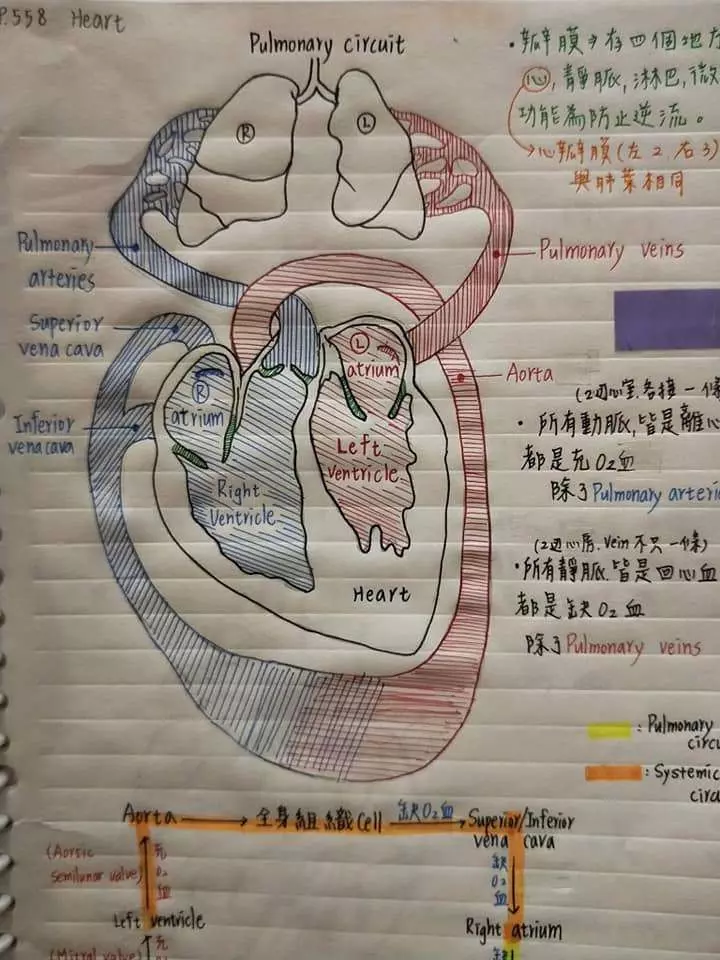 P.558 Heart
Pulmonary circuit
R
L
Pulmonary
arteries
Superior
vena cava
Inferior
vena cava
Pulmonary veins
Aorta
R
atrium
L
atrium
Right
Ventricle
Left
ventricle
Heart
・瓣膜→存四個地
心, 靜脈, 淋巴, 微
功能為防止逆流。
→心瓣膜(左2, 右3)
與肺葉相同
(2边心室, 各接一條
・所有動脈, 皆是離心
都是充O2血
除了Pulmonary arteri
(2边心房, vein不只一條)
・所有靜脈, 皆是回心血
都是缺O2血
除了Pulmonary veins
: Pulmonary
circu
: Systemic
circu
Aorta → 全身組織Cell 缺O2血 → Superior/Inferior
vena cava
(Aorsic
semilunar valve)
充
O2
血
缺
O2
血
Left ventricle
Right atrium
(Mitral valve)
充
缺